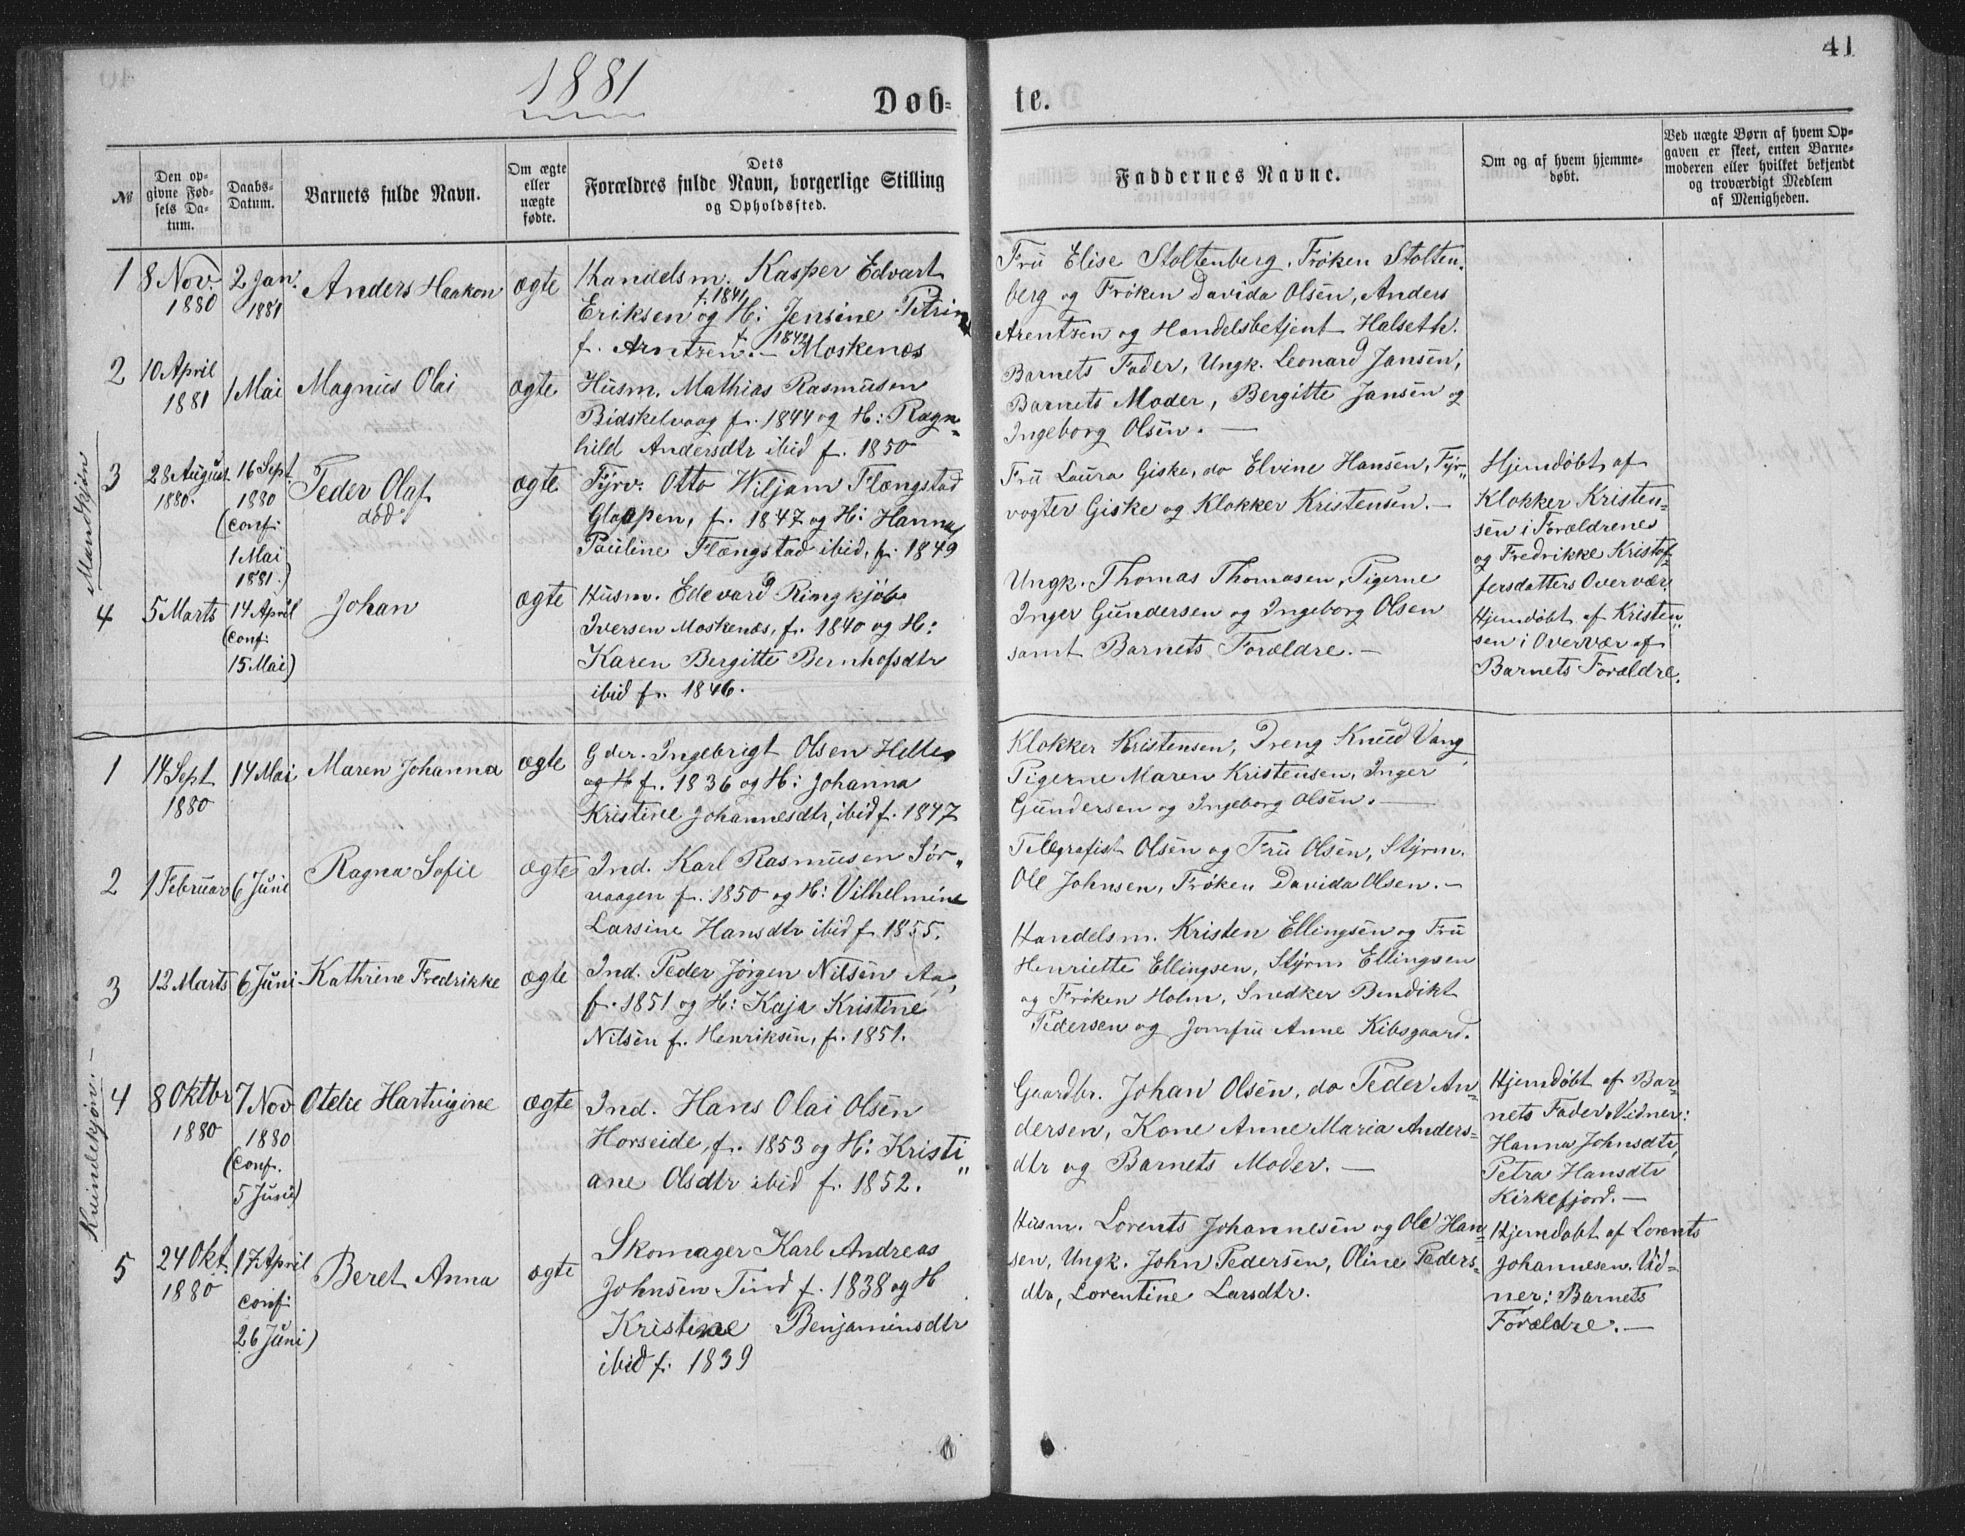 1881
41
Døb-
te.
№
Den op-
givne Fød-
sels Da-
tum.
Daabs-
Datum.
Barnets fulde Navn.
Om ægte
eller
uægte
fødte.
Dets
Forældres fulde Navn, borgerlige Stilling
og Opholdssted.
Faddernes Navne.
Om og af hvem hjemme-
døbt.
Ved uægte Børn af hvem Op-
gaven er skeet, enten Barne-
moderen eller hvilket bekjendt
og troværdigt Medlem
af Menigheden.
Mandkjøn
1
8 Nov.
1880
2 Jan.
1881
Anders Haakon
ægte
Handelsm. Kasper Edvart
f. 1841
Eriksen og H: Jensine Petrine
f. Arntzen. f. 1842 - Moskenæs
Fru Elise Stoltenberg, Frøken Stolten-
berg og Frøken Davida Olsen, Anders
Arentzen og Handelsbetjent Halseth.
2
10 April
1881
1 Mai
Magnus Olai
ægte
Husm. Mathias Rasmusen
Bidskelvaag f. 1844 og H: Ragn-
hild Andersdtr ibid f. 1850
Barnets Fader, Ungk. Leonard Jansen,
Barnets Moder, Bergitte Jansen og
Ingeborg Olsen. —
3
28 August
1880.
16 Sept
1880
(conf:
1 Mai
1881.)
Peder Olaf
død
ægte
Fyrv. Otto Wiljam Flængstad
Glaapen, f. 1847 og H: Hanna
Pauline Flængstad ibid, f. 1849
Fru Laura Giske, do Elvine Hansen, Fyr-
vogter Giske og Klokker Kristensen. -
Hjemdøbt af
Klokker Kristen-
sen i Forældrene
og Fredrikke Kristof-
fersdatters Overvær.
4
5 Marts
14 April
(conf:
15 Mai)
Johan
ægte
Husm. Edevard Ringkjøb
Iversen Moskenæs, f. 1840 og H:
Karen Bergitte Bernhofsdtr
ibid f. 1846.
Ungk. Thomas Thomasen, Pigerne
Inger Gundersen og Ingeborg Olsen
samt Barnets Forældre. -
Hjemdøbt af Kristen-
sen i Overvær af
Barnets Forældre.
Kvindekjøn. -
1
14 Sept
1880
14 Mai
Maren Johanna
ægte
Gder. Ingebrigt Olsen Helle
og H f. 1836 og H: Johanna
Kristine Johannesdtr, ibid f. 1847
Klokker Kristensen, Dreng Knud Vang
Pigerne Maren Kristensen, Inger
Gundersen og Ingeborg Olsen. —
2
1 Februar
6 Juni
Ragna Sofie
ægte
Ind. Karl Rasmusen Sør-
vaagen f. 1850 og H: Vilhelmine
Larsine Hansdtr ibid f 1855.
Telegrafist Olsen og Fru Olsen, Styrm.
Ole Johnsen, Frøken Davida Olsen. -
3
12 Marts
6 Juni
Kathrine Fredrikke
ægte
Ind. Peder Jørgen Nilsen Aa,
f. 1851 og H: Kaja Kristine
Nilsen f. Henriksen, f. 1851.
Handelsm. Kristen Ellingsen og Fru
Henriette Ellingsen, Styrm Ellingsen
og Frøken Holm, Snedker Bendikt
Pedersen og Jomfru Anne Kibsgaard.
4
8 Oktbr
1880
7 Nov
1880
(conf.
5 Juni)
Otelie Hartvigine
ægte
Ind. Hans Olai Olsen
Horseide, f. 1853 og H: Kristi-
ane Olsdtr ibid f. 1852.
Gaardbr. Johan Olsen, do Peder An-
dersen, Kone Anne Maria Anders-
dtr og Barnets Moder. —
Hjemdøbt af Bar-
nets Fader. Vidner:
Hanna Johnsdtr,
Petra Hansdtr
Kirkefjord. -
5
24 Okt.
1880
17 April
conf:
26 Juni)
Beret Anna
ægte
Skomager Karl Andreas
Johnsen Tind f. 1838 og H
Kristine Benjaminsdtr
ibid f. 1839
Husm. Lorents Johannesen og Ole Han-
sen, Ungk. John Pedersen, Oline Peders-
dtr, Lorentine Larsdtr.
Hjemdøbt af Lorents
Johannesen. Vid-
ner: Barnets
Forældre. -